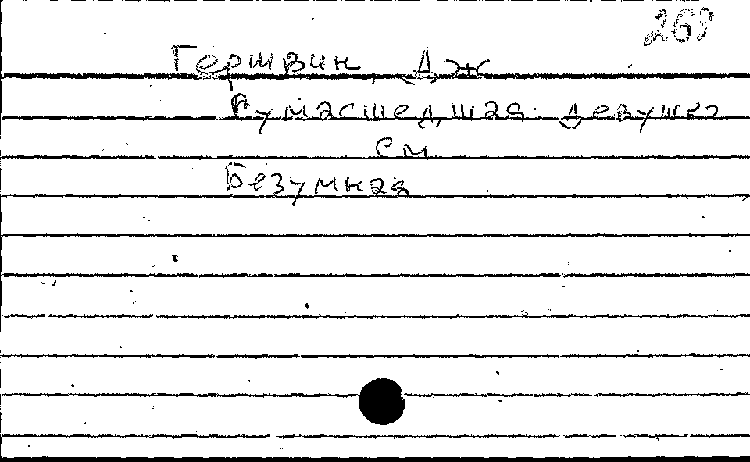 Гершвин, Дж
Сумасшедшая девушка
См
Безумная